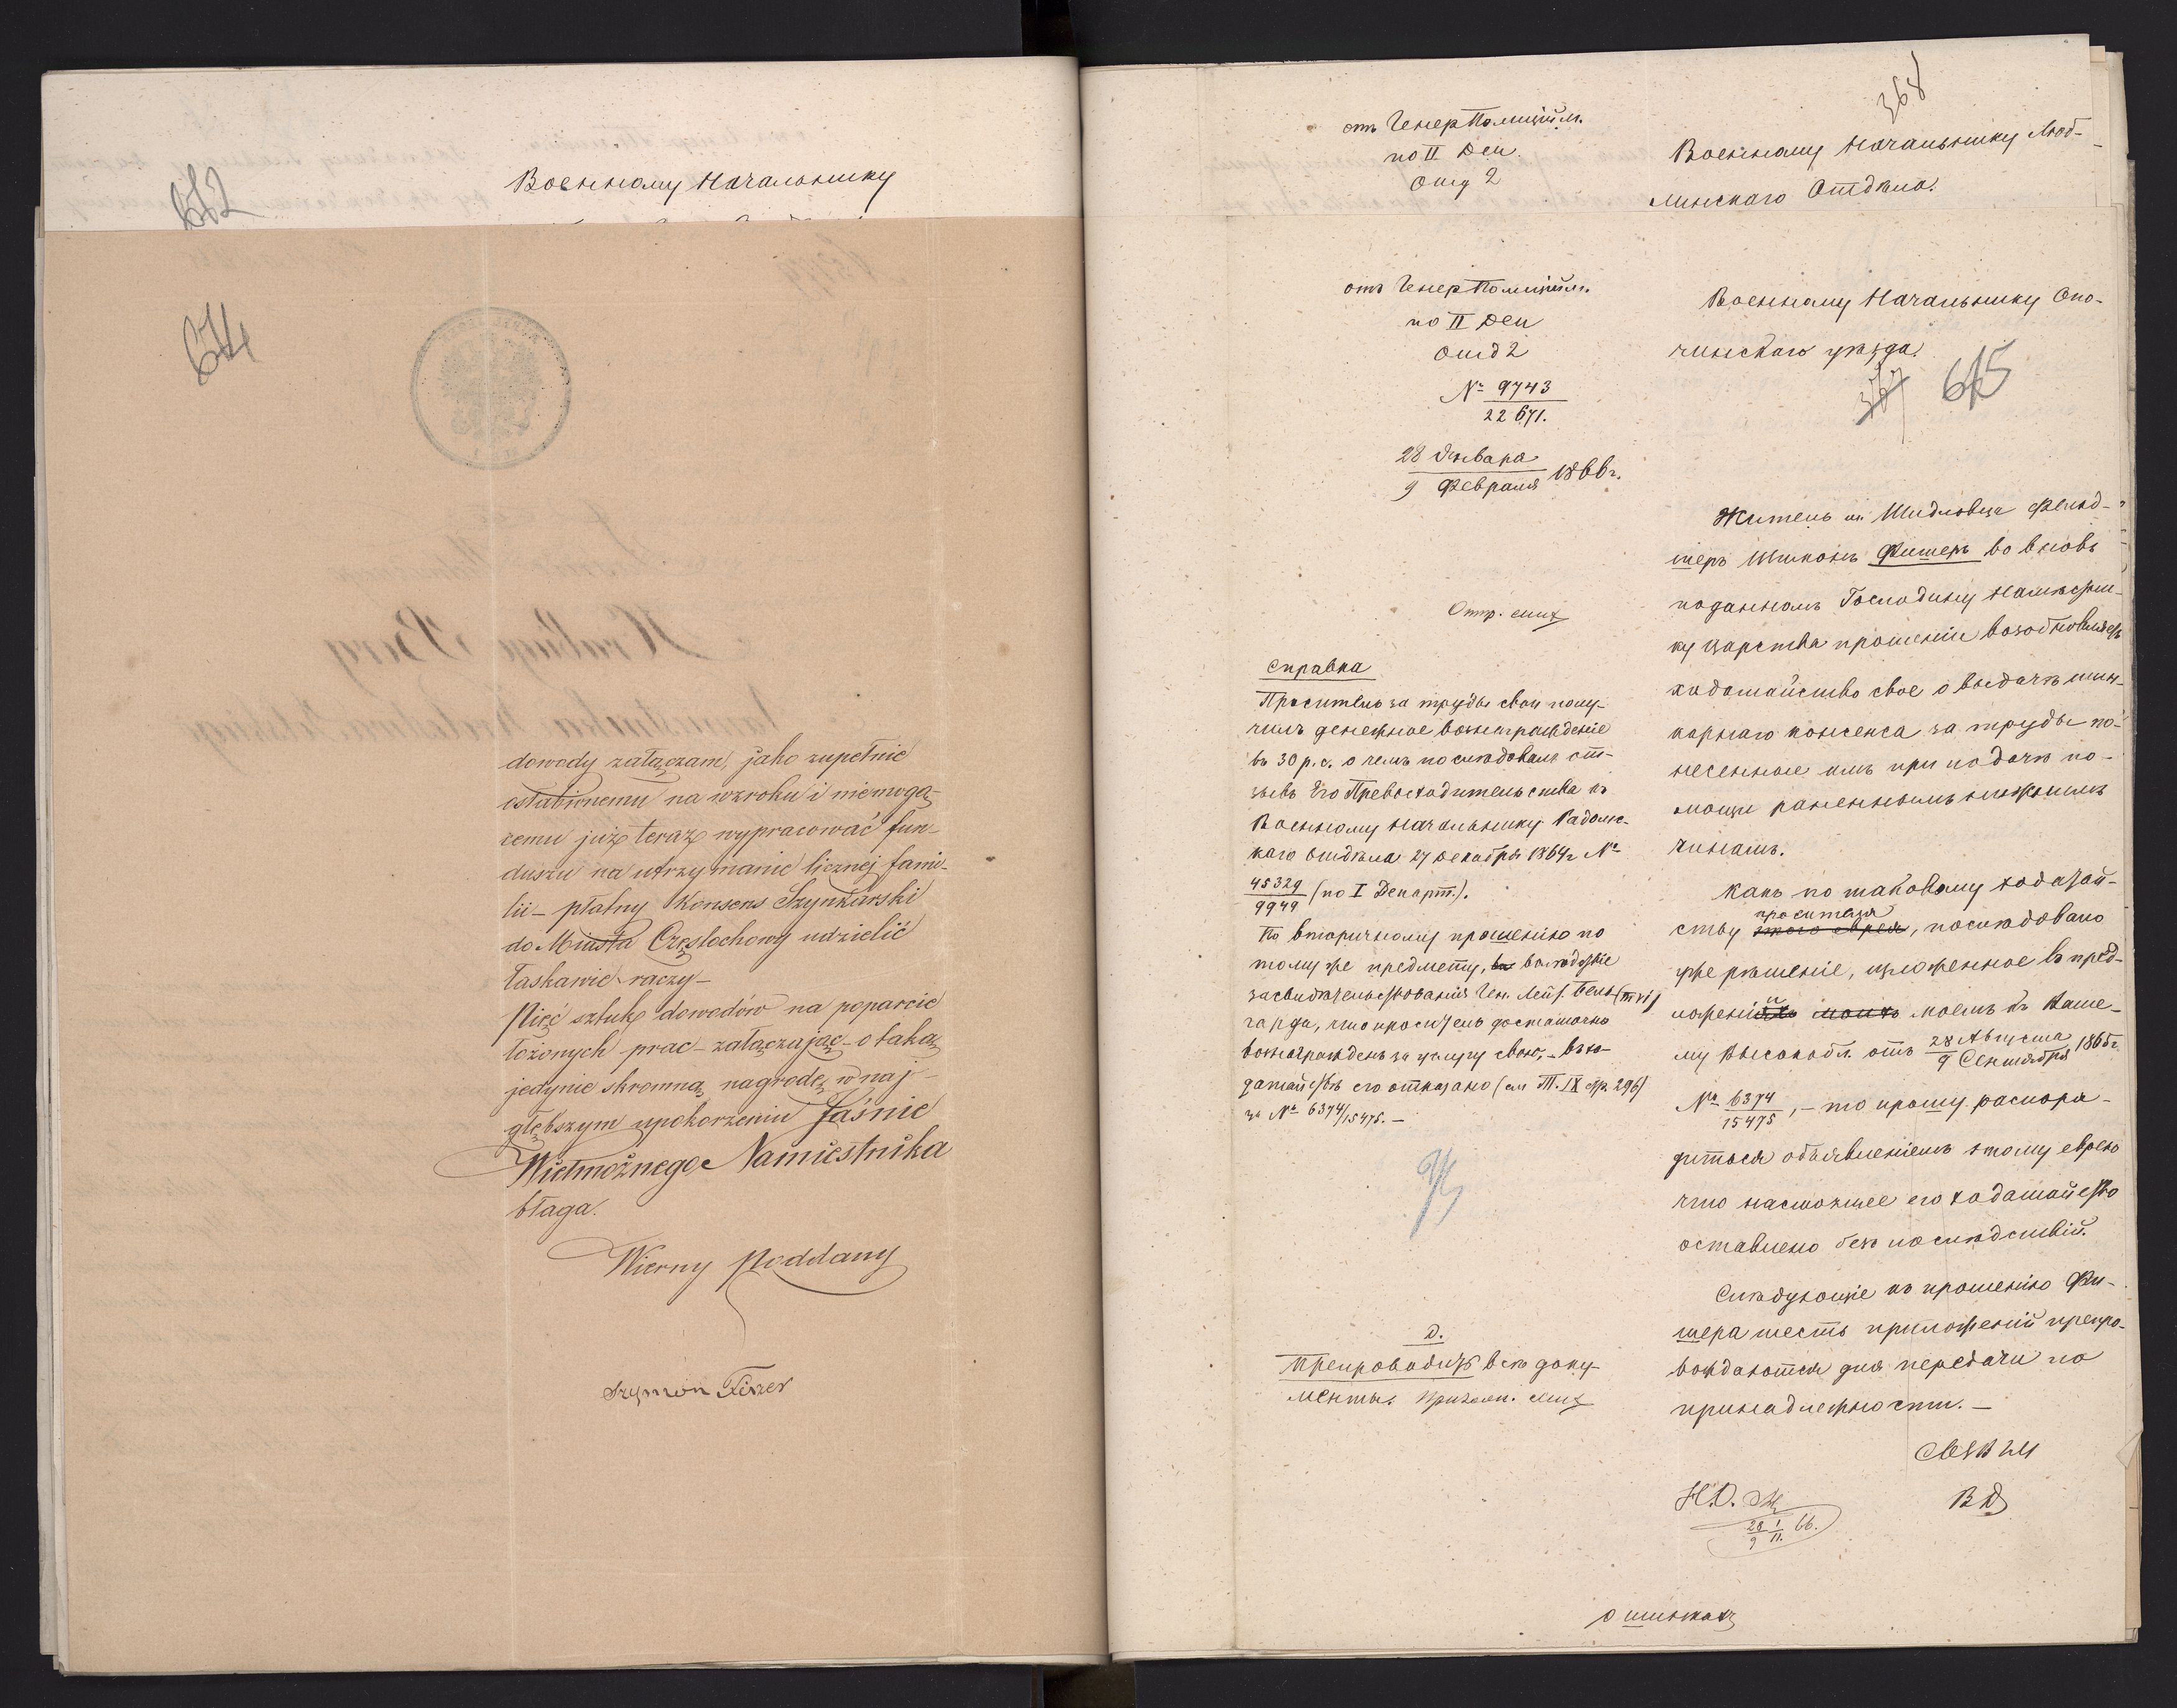 Военному Начальнику
672
674
dowody załączam, jako zupełnie
osłabionemu na wzroku i niemogą-
cemu już teraz wypracować fun-
duszu na utrzymanie licznej fami-
lii – płatny Konsens Szynkarski
do Miasta Częstochowy udzielić
łaskawie raczy –
Pięć sztuk dowodów na poparcie
łożonych prac – załączając – o taką
jedynie skromną nagrodę, w naj-
głębszym upokorzeniu Jaśnie
Wielmożnego Namiestnika
błaga.
Wierny Poddany
Szymon Fiszer
368
отъ Генер Полиційм.
по II Деп.
Отд 2
Военному Начальнику Люб-
линскаго Отдѣла.
отъ Генер Полиційм.
по II Деп
Отд 2
№ 9743
22671.
28 Января
9 Февраля 1866 г.
Военному Начальнику Опо-
чинскаго уѣзда.
367 675
Отпр.
Справка
Проситель за труды свои полу-
чилъ денежное вознагражденіе
въ 30 р. с. о чемъ послѣдовалъ от-
зывъ Его Превосходительства къ
Военному Начальнику Радомс-
каго Отдѣла 27 Декабря 1864 г №
45329
9949 (по I Департ.).
По вторичному прошенію по
тому же предмету, въ вслѣдствіе
засвидѣтельствованія Ген. Лейт. Бель-
гарда, что проситель достаточно
вознагражденъ за услугу свою, – въ хо-
датайствѣ его отказано (см Т. IX стр. 296)
за № 6374/15475. –
Д.
Препроводить всѣ доку-
менты.
Житель м. Шидловца Фельд-
шеръ Шимонъ Фишеръ во вновь
поданномъ Господину Намѣстни-
ку Царства прошеніи возобновляетъ
ходатайство свое о выдачѣ шин-
карнаго консенса за труды по-
несенные имъ при подачѣ по-
мощи раненнымъ нижнимъ
чинамъ.
Какъ по таковому ходатай-
просителя
ству этого еврея, послѣдовано
уже рѣшеніе, изложенное въ пред-
ложеніи моихъ моемъ къ Ваше-
му Высокобл. отъ 28 Августа
9 Сентября 1865 г.
№ 6374
15475, – то прошу распоря-
диться объявленіемъ этому еврею
что настоящее его ходатайство
оставлено безъ послѣдствій.
Слѣдующіе къ прошенію Фи-
шера шесть приложеній препро-
вождаются для передачи по
принадлежности. –
Н.О.
28 I 66.
9 II.
ВД
о шинкахъ